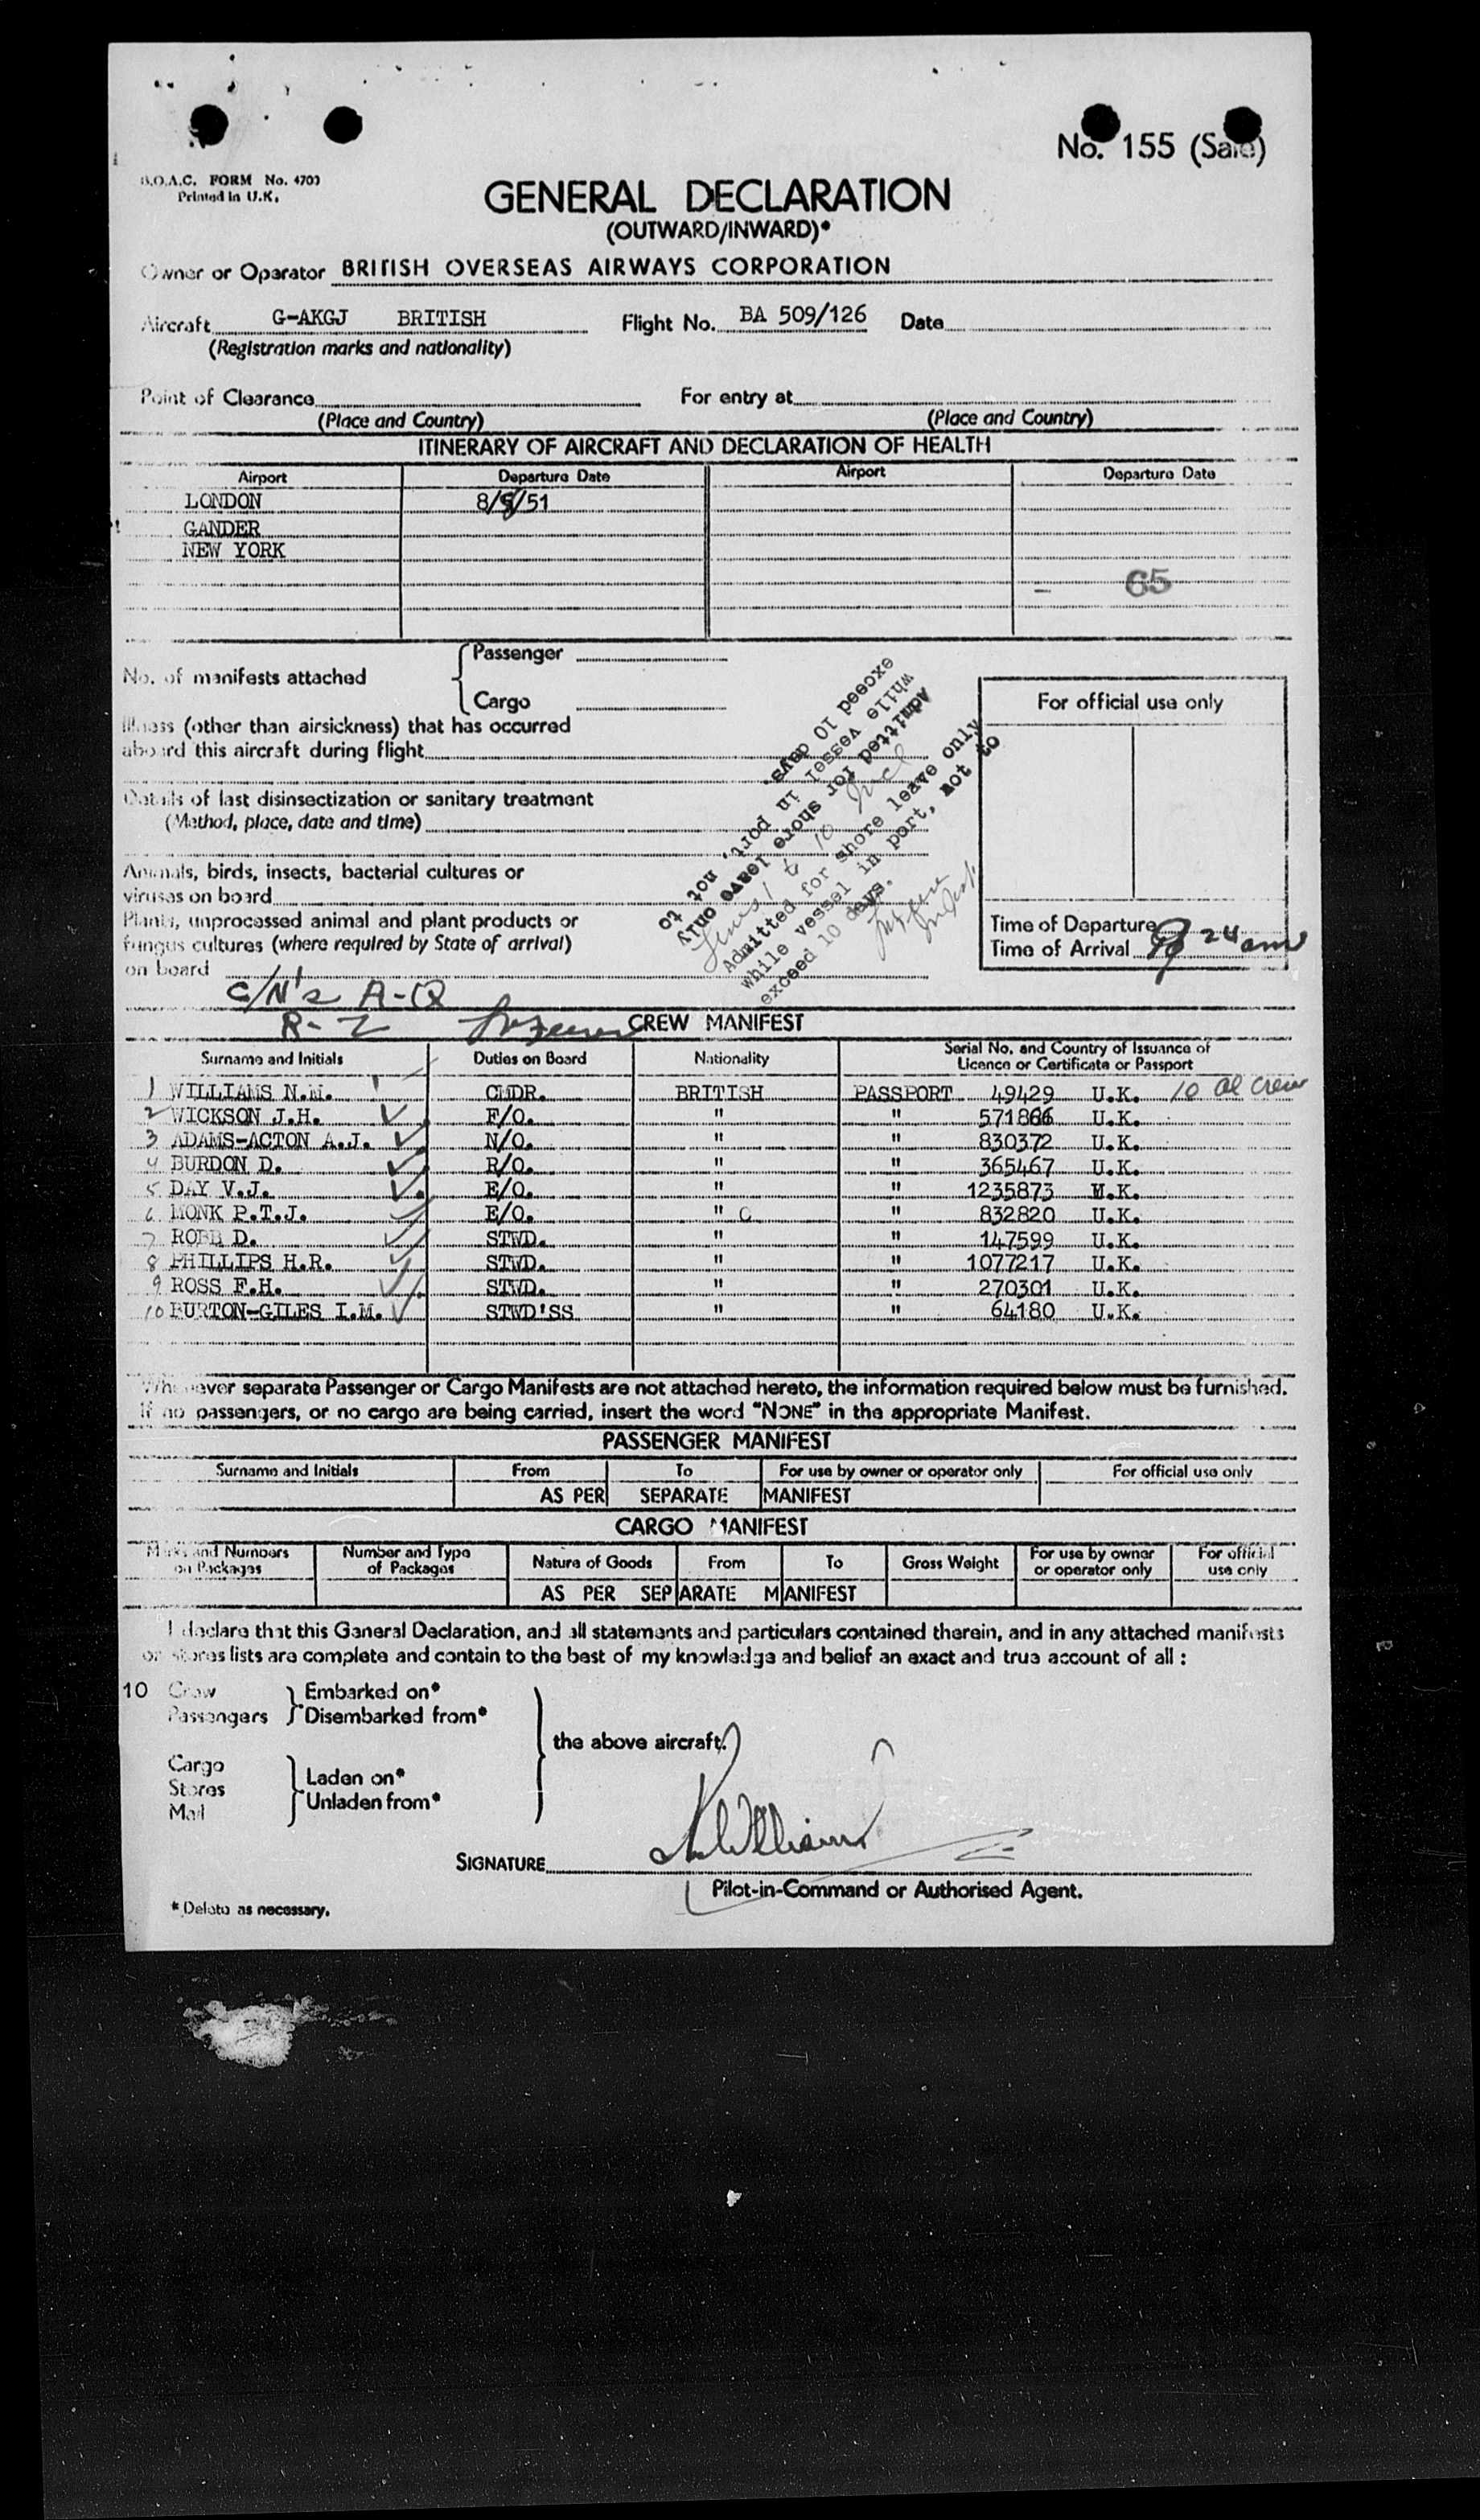 No. 155 (Sale)
B.O.A.C. FORM No. 4703
Printed in U.K.
GENERAL DECLARATION
(OUTWARD/INWARD)*
Owner or Operator BRITISH OVERSEAS AIRWAYS CORPORATION
Aircraft G-AKGJ BRITISH Flight No. BA 509/126 Date
(Registration marks and nationality)
Point of Clearance For entry at
(Place and Country) (Place and Country)
ITINERARY OF AIRCRAFT AND DECLARATION OF HEALTH
Airport Departure Date Airport Departure Date
LONDON 8/5/51
GANDER
NEW YORK
65
No. of manifests attached { Passenger
Cargo
Illness (other than airsickness) that has occurred
aboard this aircraft during flight
Details of last disinsectization or sanitary treatment
(Method, place, date and time)
Animals, birds, insects, bacterial cultures or
viruses on board
Plants, unprocessed animal and plant products or
fungus cultures (where required by State of arrival)
on board
Admitted for shore leave only
while vessel in port, not to
exceed 10 days.
Admitted for shore leave only
while vessel in port, not to
exceed 10 days.
For official use only
Time of Departure
Time of Arrival 9 24 am
C/N's A-Q
R-Z
CREW MANIFEST
Surname and Initials Duties on Board Nationality Serial No. and Country of Issuance of
Licence or Certificate or Passport
1 WILLIAMS N.M. CMDR. BRITISH PASSPORT 49429 U.K. 10 al crew
2 WICKSON J.H. F/O. " " 571866 U.K.
3 ADAMS-ACTON A.J. N/O. " " 830372 U.K.
4 BURDON D. R/O. " " 365467 U.K.
5 DAY V.J. E/O. " " 1235873 U.K.
6 MONK P.T.J. E/O. " " 832820 U.K.
7 ROBB D. STWD. " " 147599 U.K.
8 PHILLIPS H.R. STWD. " " 1077217 U.K.
9 ROSS F.H. STWD. " " 270301 U.K.
10 BURTON-GILES I.M. STWD'SS " " 64180 U.K.
Whenever separate Passenger or Cargo Manifests are not attached hereto, the information required below must be furnished.
If no passengers, or no cargo are being carried, insert the word "NONE" in the appropriate Manifest.
PASSENGER MANIFEST
Surname and Initials From To For use by owner or operator only For official use only
AS PER SEPARATE MANIFEST
CARGO MANIFEST
Marks and Numbers on Packages Number and Type of Packages Nature of Goods From To Gross Weight For use by owner or operator only For official use only
AS PER SEPARATE MANIFEST
I declare that this General Declaration, and all statements and particulars contained therein, and in any attached manifests
or stores lists are complete and contain to the best of my knowledge and belief an exact and true account of all :
10 Crew } Embarked on*
Passengers } Disembarked from*
the above aircraft.
Cargo
Stores } Laden on*
Mail } Unladen from*
SIGNATURE N. Williams
Pilot-in-Command or Authorised Agent.
* Delete as necessary.